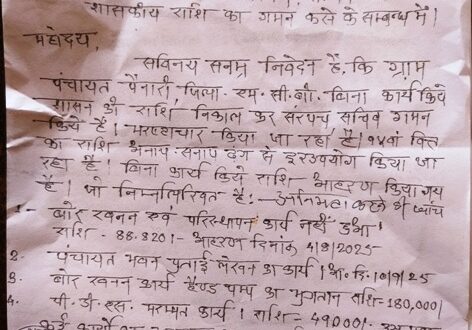 शासकीय राशि का गमन करने के सम्बन्ध में।
महोदय,
सविनय सनम्र निवेदन है, कि ग्राम
पंचायत पैनारी, जिला- एम. सी. बी. बिना कार्य किये
शासन की राशि निकाल कर सरपंच सचिव गमन
किये है। भ्रष्टाचार किया जा रहा है। १५वां वित्त
का राशि अनाप-सनाप ढंग से दुरउपयोग किया जा
रहा है। बिना कार्य किये राशि आहरण किया गया
है। जो निम्नलिखित है:-
1- बोर खनन एवं परिस्थापन कार्य नहीं हुआ।
राशि - 88.820/- आहरण दिनांक 4/8/2025-
2- पंचायत भवन पुताई लेखन का कार्य। आ. दि. 10/9/25
3. बोर खनन कार्य हैण्ड पम्प का भुगतान राशि- 180,000/
4. पी. डी. एस. मरम्मत कार्य। राशि - 49000/-